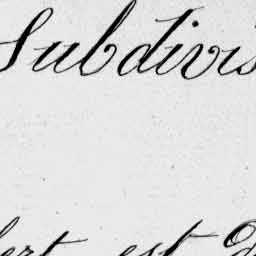 Subdivis
bert est D